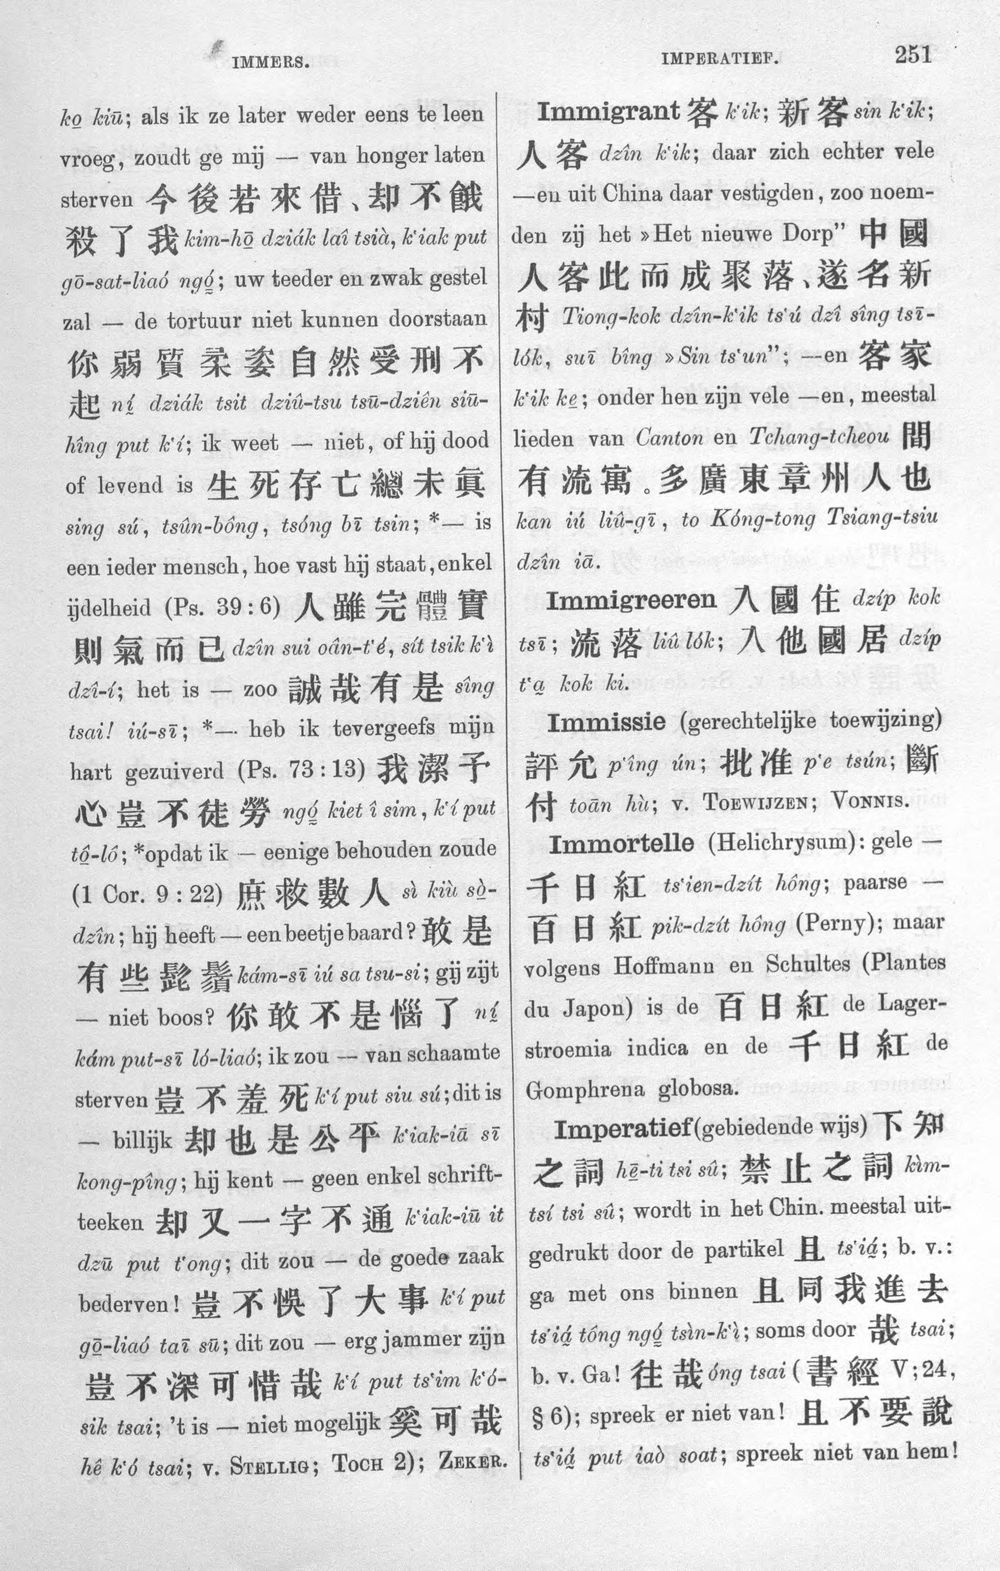 IMMERS.
IMPERATIEF.
251
ko̱ kiū; als ik ze later weder eens te leen
vroeg, zoudt ge mij — van honger laten
sterven 今後若來借、却不餓
殺了我 kim-hō̱ dziák laî tsià, k‘iak put
gō-sat-liaó ngó̱; uw teeder en zwak gestel
zal — de tortuur niet kunnen doorstaan
你弱質柔姿自然受刑不
起 ní̱ dziák tsit dziû-tsu tsū-dziên siū-
hîng put k‘í; ik weet — niet, of hij dood
of levend is 生死存亡總未眞
sing sú, tsûn-bông, tsóng bī tsin; *— is
een ieder mensch, hoe vast hij staat, enkel
ijdelheid (Ps. 39:6) 人雖完體實
則氣而已 dzîn sui oân-t‘é, sít tsik k‘ì
dzî-í; het is — zoo 誠哉有是 sîng
tsai! iú-sī; *—. heb ik tevergeefs mijn
hart gezuiverd (Ps. 73:13) 我潔予
心豈不徒勞 ngó̱ kiet î sim, k‘í put
tô̱-lô; *opdat ik — eenige behouden zoude
(1 Cor. 9:22) 庶救數人 sì kiù sò̱-
dzîn; hij heeft — een beetje baard? 敢是
有些髭鬚 kám-sī iú sa tsu-si; gij zijt
— niet boos? 你敢不是惱了 ní̱
kám put-sī ló-liaó; ik zou — van schaamte
sterven 豈不羞死 k‘í put siu sú; dit is
— billijk 却也是公平 k‘iak-iā sī
kong-pîng; hij kent — geen enkel schrift-
teeken 却又一字不通 k‘iak-iū it
dzū put t‘ong; dit zou — de goede zaak
bederven! 豈不悞了大事 k‘í put
gō̱-liaó taī sū; dit zou — erg jammer zijn
豈不深可惜哉 k‘í put ts‘im k‘ó-
sik tsai; ’t is — niet mogelijk 奚可哉
hê k‘ó tsai; v. STELLIG; TOCH 2); ZEKER.
Immigrant 客 k‘ik; 新客 sin k‘ik;
人客 dzîn k‘ik; daar zich echter vele
—en uit China daar vestigden, zoo noem-
den zij het »Het nieuwe Dorp” 中國
人客此而成聚落、遂名新
村 Tiong-kok dzîn-k‘ik ts‘ú dzî sîng tsī-
lók, suī bîng »Sin ts‘un”; —en 客家
k‘ik ke̱; onder hen zijn vele —en, meestal
lieden van Canton en Tchang-tcheou 間
有流寓。多廣東章州人也
kan iú liû-gī, to Kóng-tong Tsiang-tsiu
dzîn iā.
Immigreeren 入國住 dzíp kok
tsī; 流落 liû lók; 入他國居 dzíp
t‘a̱ kok ki.
Immissie (gerechtelijke toewijzing)
評允 p‘îng ún; 批准 p‘e tsún; 斷
付 toān hù; v. TOEWIJZEN; VONNIS.
Immortelle (Helichrysum): gele —
千日紅 ts‘ien-dzít hông; paarse —
百日紅 pik-dzít hông (Perny); maar
volgens Hoffmann en Schultes (Plantes
du Japon) is de 百日紅 de Lager-
stroemia indica en de 千日紅 de
Gomphrena globosa.
Imperatief (gebiedende wijs) 下知
之詞 hē̱-ti tsi sû; 禁止之詞 kìm-
tsí tsi sû; wordt in het Chin. meestal uit-
gedrukt door de partikel 且 ts‘iá̱; b. v.:
ga met ons binnen 且同我進去
ts‘iá̱ tông ngó̱ tsìn-k‘ì; soms door 哉 tsai;
b. v. Ga! 往哉 óng tsai (書經 V; 24,
§ 6); spreek er niet van! 且不要說
ts‘iá̱ put iaò soat; spreek niet van hem!